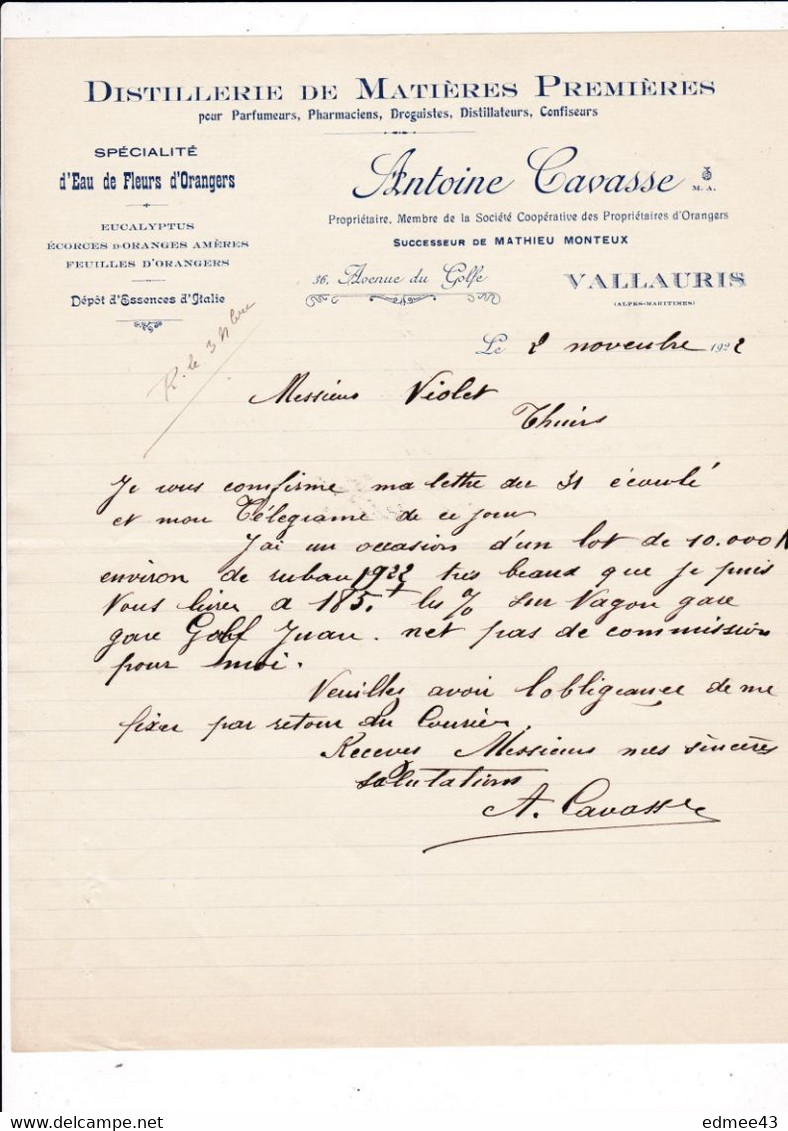 DISTILLERIE DE MATIÈRES PREMIÈRES
pour Parfumeurs, Pharmaciens, Droguistes, Distillateurs, Confiseurs
SPÉCIALITÉ
d'Eau de Fleurs d'Orangers
EUCALYPTUS
ÉCORCES D'ORANGES AMÈRES
FEUILLES D'ORANGERS
Dépôt d'Essences d'Italie
Antoine Cavasse M. A.
Propriétaire, Membre de la Société Coopérative des Propriétaires d'Orangers
SUCCESSEUR DE MATHIEU MONTEUX
36, Avenue du Golfe
VALLAURIS
(ALPES-MARITIMES)
R. le 3 Nbre
Le 2 novembre 1922
Messieurs Violet
Thuirs
Je vous comfirme ma lettre du 31 écoulé
et mon Télegrame de ce jour
J'ai un occasion d'un lot de 10.000 K
environ de ruban 1922 tres beaux que je puis
Vous livrer a 185.f les % sur Vagon gare
gare Golf Juan. net pas de commission
pour moi.
Veuillez avoir lobligeance de me
fixer par retour du Courier.
Receves Messieurs mes sincères
salutations
A. Cavasse
edmee43